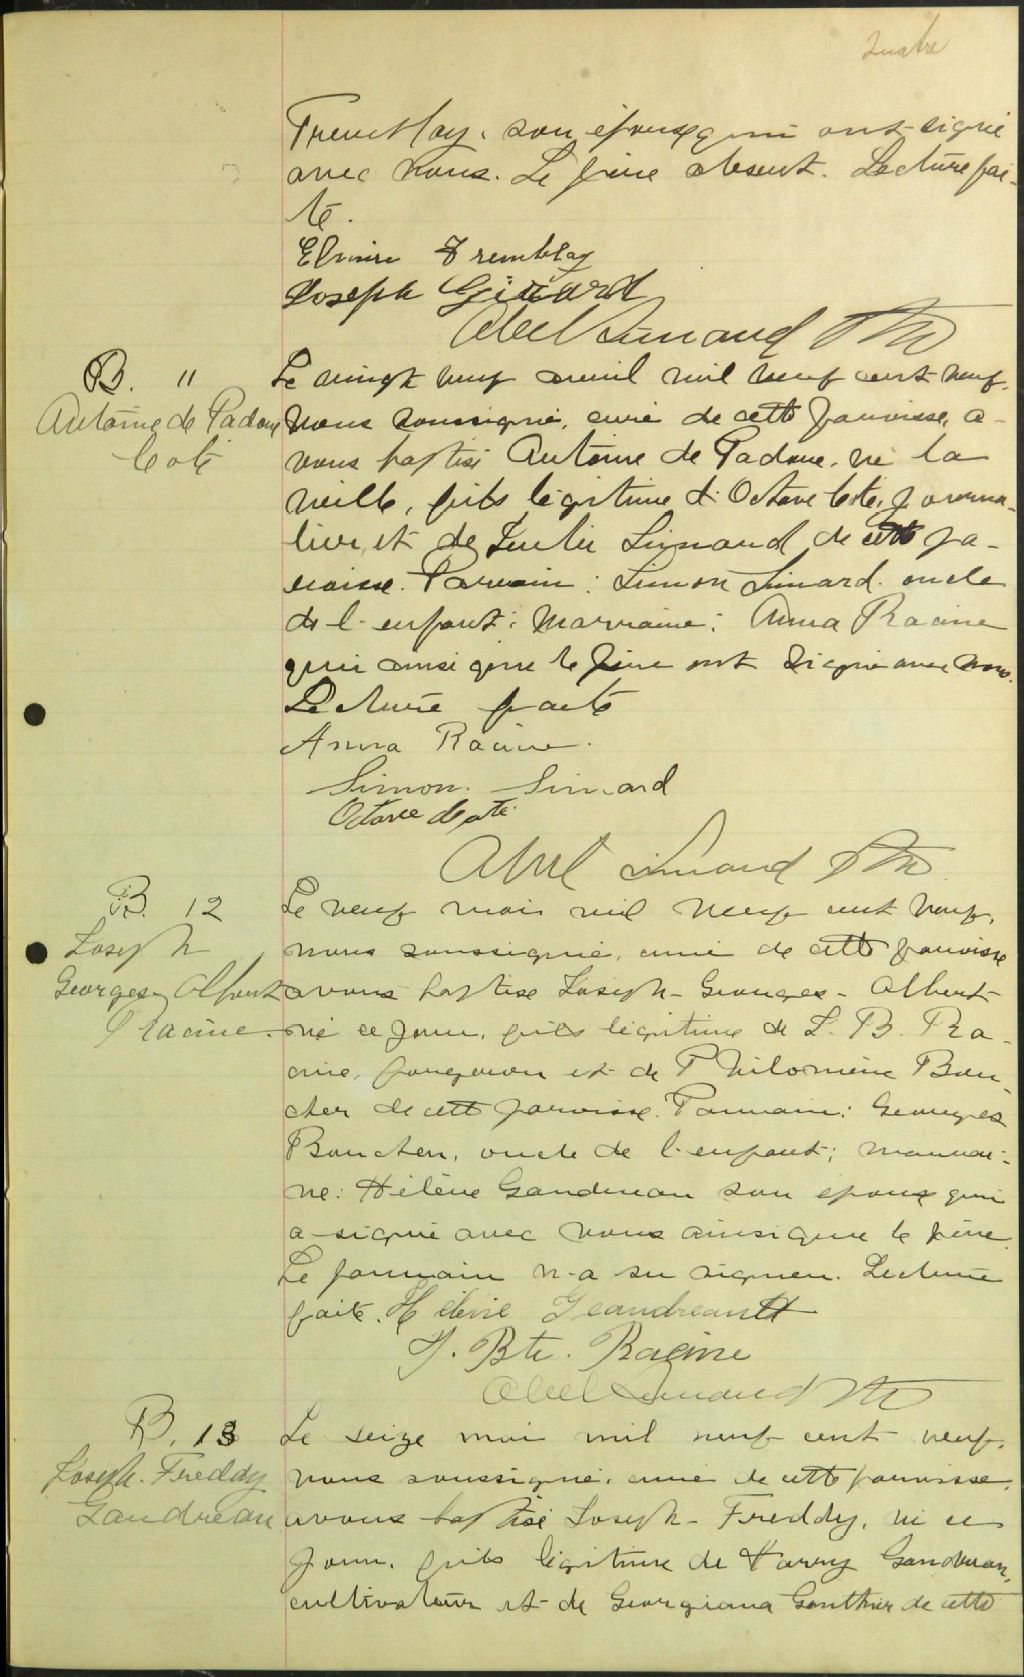 Quatre
Tremblay, son épouse qui ont signé
avec nous. Le père absent. Lecture fai-
te.
Elmire Tremblay
Joseph Girard
Abel Simard Ptre
B. 11
Antoine de Padoue
Coté
Le vingt neuf avril mil neuf cent neuf,
nous soussigné, curé de cette paroisse, a-
vons baptisé Antoine de Padoue, né la
veille, fils légitime d'Octave Coté, journa-
lier, et de Julie Simard de cette pa-
roisse. Parrain: Simon Simard oncle
de l'enfant; marraine: Anna Racine
qui ainsi que le père ont signé avec nous.
Lecture faite
Anna Racine.
Simon Simard
Octave Coté
Abel Simard Ptre
B. 12
Joseph
Georges Albert
Racine
Le neuf mai mil neuf cent neuf,
nous soussigné, curé de cette paroisse
avons baptisé Joseph-Georges-Albert
né ce jour, fils légitime de J. B. Ra-
cine, forgeron et de Philomène Bou-
cher de cette paroisse. Parrain: Georges
Boucher, oncle de l'enfant; marrai-
ne: Hélène Gaudreau son épouse qui
a signé avec nous ainsi que le père.
Le parrain n'a su signer. Lecture
faite. Hélène Geaudreault
J. Bte. Racine
Abel Simard Ptre
B. 13
Joseph-Freddy
Gaudreau
Le seize mai mil neuf cent neuf,
nous soussigné, curé de cette paroisse,
avons baptisé Joseph-Freddy, né ce
jour, fils légitime de Harry Gaudreau,
cultivateur et de Georgiana Gauthier de cette